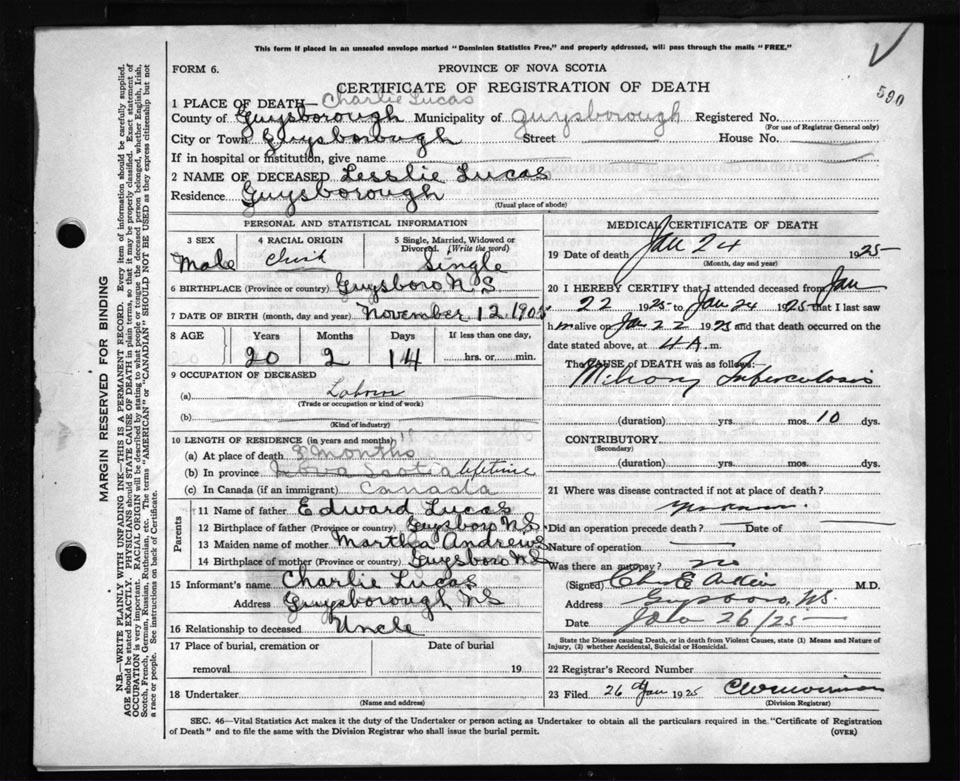 This form if placed in an unsealed envelope marked "Dominion Statistics Free," and properly addressed, will pass through the mails "FREE."
590
FORM 6.
PROVINCE OF NOVA SCOTIA
CERTIFICATE OF REGISTRATION OF DEATH
1 PLACE OF DEATH— Charlie Lucas
County of Guysborough Municipality of Guysborough Registered No.
(For use of Registrar General only)
City or Town Guysborough Street House No.
If in hospital or institution, give name
2 NAME OF DECEASED Lesslie Lucas
Residence Guysborough
(Usual place of abode)
PERSONAL AND STATISTICAL INFORMATION
3 SEX 4 RACIAL ORIGIN 5 Single, Married, Widowed or Divorced. (Write the word)
Male Single
6 BIRTHPLACE (Province or country) Guysboro N S
7 DATE OF BIRTH (month, day and year) November 12 1905
8 AGE Years Months Days If less than one day,
20 2 14 hrs. or min.
9 OCCUPATION OF DECEASED
(a)
(Trade or occupation or kind of work)
(b)
(Kind of industry)
10 LENGTH OF RESIDENCE (in years and months)
(a) At place of death months
(b) In province Nova Scotia lifetime
(c) In Canada (if an immigrant) Canada
Parents
11 Name of father Edward Lucas
12 Birthplace of father (Province or country) Guysboro N.S.
13 Maiden name of mother Martha Andrews
14 Birthplace of mother (Province or country) Guysboro NS
15 Informant's name Charlie Lucas
Address Guysborough NS
16 Relationship to deceased Uncle
17 Place of burial, cremation or Date of burial
removal 19
18 Undertaker
(Name and address)
MEDICAL CERTIFICATE OF DEATH
19 Date of death Jan 24 1925
(Month, day and year)
20 I HEREBY CERTIFY that I attended deceased from Jan
22 1925 to Jan 24 1925 that I last saw
him alive on Jan 22 1925 and that death occurred on the
date stated above, at 4 A. m.
The CAUSE OF DEATH was as follows:
Tuberculosis
(duration) yrs. mos 10 dys.
CONTRIBUTORY
(Secondary)
(duration) yrs. mos. dys.
21 Where was disease contracted if not at place of death?
Did an operation precede death? Date of
Nature of operation
Was there an autopsy? no
(Signed) M.D.
Address Guysboro, N.S.
Date 26/25
State the Disease causing Death, or in death from Violent Causes, state (1) Means and Nature of
Injury, (2) whether Accidental, Suicidal or Homicidal.
22 Registrar's Record Number
23 Filed 26 Jan 1925
(Division Registrar)
SEC. 46—Vital Statistics Act makes it the duty of the Undertaker or person acting as Undertaker to obtain all the particulars required in the "Certificate of Registration
of Death" and to file the same with the Division Registrar who shall issue the burial permit.
(OVER)
MARGIN RESERVED FOR BINDING
N.B.—WRITE PLAINLY WITH UNFADING INK—THIS IS A PERMANENT RECORD. Every item of information should be carefully supplied.
AGE should be stated EXACTLY. PHYSICIANS should STATE CAUSE OF DEATH in plain terms, so that it may be properly classified. Exact statement of
OCCUPATION is very important. RACIAL ORIGIN will be described by stating to what people or tongue the deceased person belonged, whether English, Irish,
Scotch, French, German, Russian, Ruthenian, etc. The terms "AMERICAN" or "CANADIAN" SHOULD NOT BE USED as they express citizenship but not
a race or people. See instructions on back of Certificate.